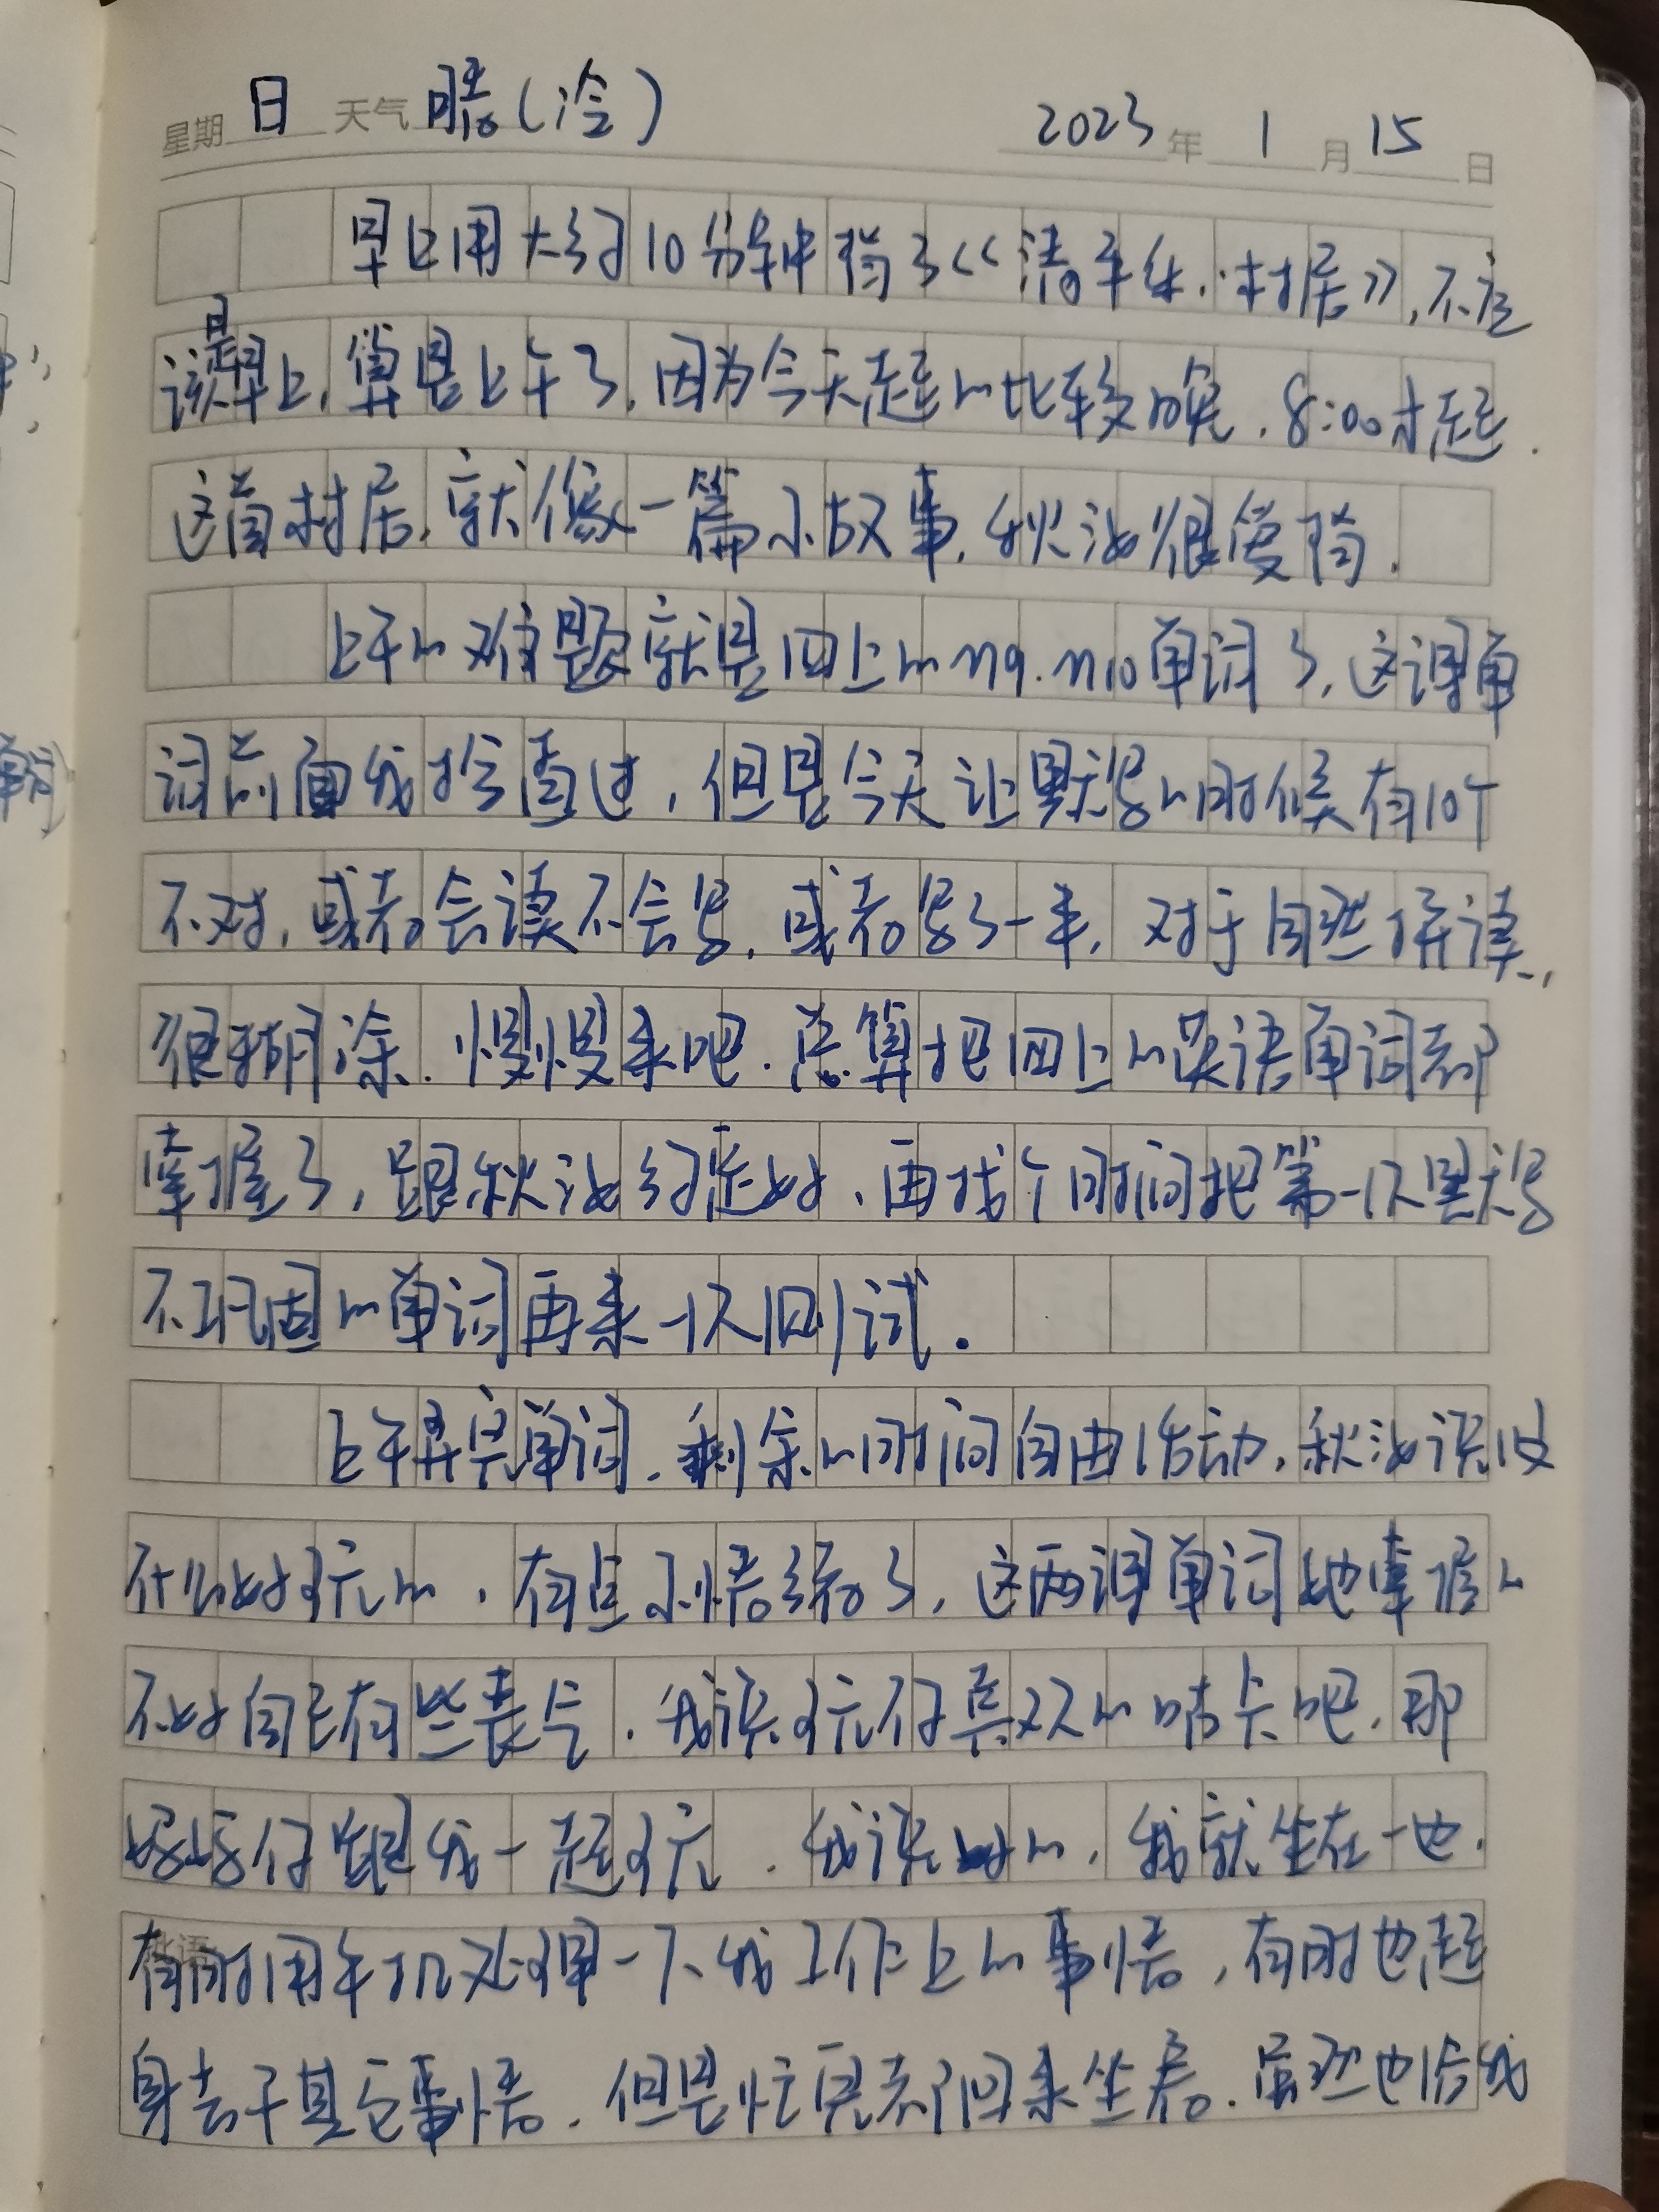 星期 日 天气 晴(冷) 2023年 1月 15日
早上用大约10分钟背了《清平乐·村居》,不应
该是早上,算是上午了,因为今天起的比较晚,8:00才起.
这首村居,就像一篇小故事,秋汝很爱背.
上午的难题就是四上的m9.m10单词了,这课单
词前面我抢查过,但是今天让默写的时候有10个
不对,或者会读不会写,或者写了一半,对于自然拼读,
很糊涂.慢慢来吧.总算把四上的英语单词都
掌握了,跟秋汝约定好,再找个时间把第一次默写
不巩固的单词再来一次测试。
上午弄完单词,剩余的时间自由活动,秋汝说没
什么好玩的,有点小情绪了,这两课单词她掌握的
不好自己有些丧气.我说玩你喜欢的咕卡吧,那
妈妈你跟我一起玩.我说好的,我就坐在一边.
有时用手机处理一下我工作上的事情,有时也起
身去干其它事情.但是忙完都回来坐着.虽然也给我